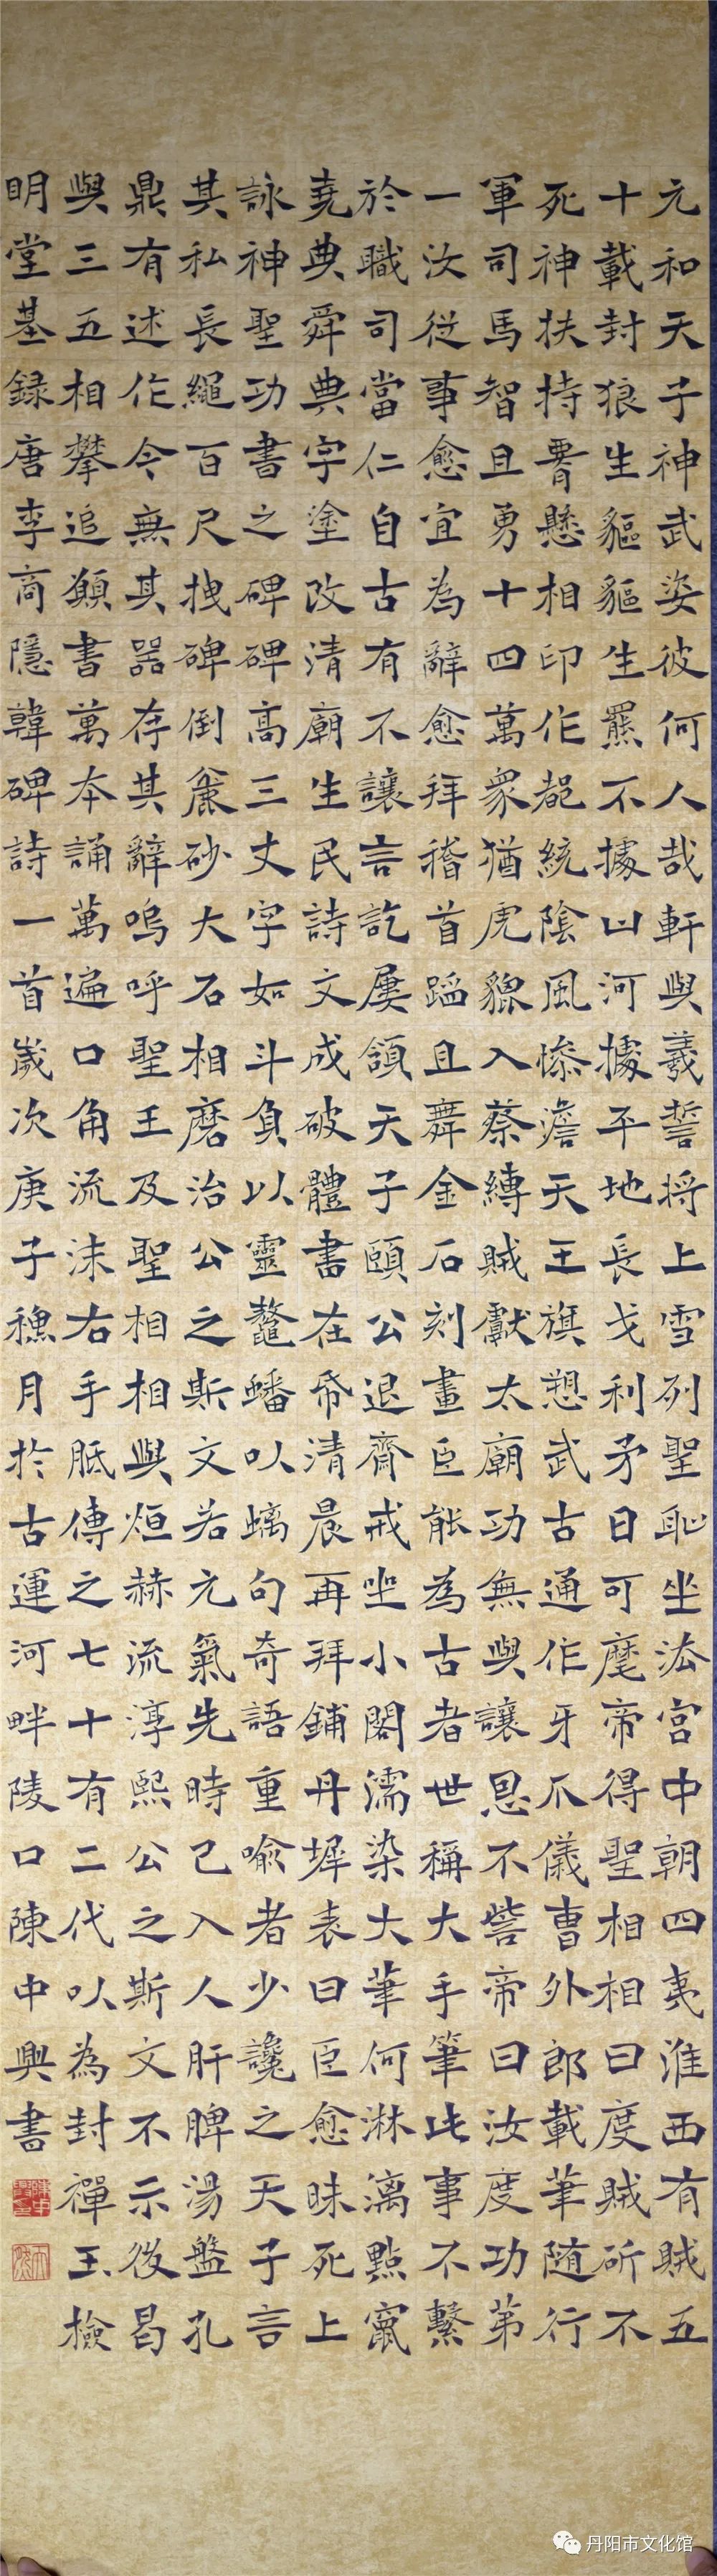 元和天子神武姿彼何人哉軒與羲誓將上雪列聖恥坐法宮中朝四夷淮西有賊五
十載封狼生貙貙生羆不據山河據平地長戈利矛日可麾帝得聖相相曰度賊斫不
死神扶持腰懸相印作都統陰風慘澹天王旗愬武古通作牙爪儀曹外郎載筆随行
軍司馬智且勇十四萬眾猶虎貔入蔡縛賊獻太廟功無與讓恩不訾帝曰汝度功第
一汝從事愈宜為辭愈拜稽首蹈且舞金石刻畫臣能為古者世稱大手筆此事不繫
於職司當仁自古有不讓言訖屢頷天子頤公退齋戒坐小閣濡染大筆何淋漓點竄
堯典舜典字塗改清廟生民詩文成破體書在帋清晨再拜鋪丹墀表曰臣愈昧死上
詠神聖功書之碑碑高三丈字如斗負以靈鼇蟠以螭句奇語重喻者少讒之天子言
其私長繩百尺拽碑倒麄砂大石相磨治公之斯文若元氣先時已入人肝脾湯盤孔
鼎有述作今無其器存其辭嗚呼聖王及聖相相與烜赫流淳熙公之斯文不示後曷
與三五相攀追願書萬本誦萬遍口角流沫右手胝傳之七十有二代以為封禪玉檢
明堂基録唐李商隱韓碑詩一首歲次庚子穐月於古運河畔陵口陳中興書
丹阳市文化馆